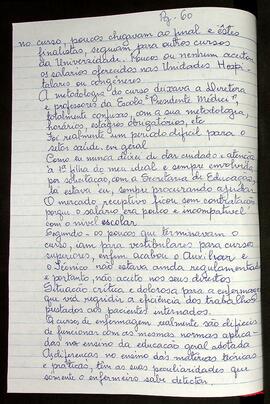 Pg. 60
no curso, poucos chegavam ao final e êstes
finalistas, seguiam para outros cursos
da Universidade. Poucos ou nenhum aceitar
os salarios oferecidos nas Unidades Hospi-
talares ou congêneres.
A metodologia do curso deixava a Diretora
e professores da Escola "Presidente Médice",
totalmente confusos, com a sua metodologia,
horários, estágios obrigatórios, etc
Foi realmente um período dificil para o
setor saúde, em geral
Como eu nunca deixei de dar cuidado e atenção
à 1ª filha do meu ideal e sempre envolvida
por solicitação, com a Secretaria de Educação,
la estava eu, sempre procurando ajuda.
O mercado receptivo ficou sem contratação
porque o salário era pouco e incompativel
com o nivel escolar.
Segundo - os poucos que terminavam o
curso, iam para vestibulares para cursos
superiores, enfim acabou o Auxiliar e
o Técnico não estava ainda regulamentado
e portanto, não aceito nos seus direitos
Situação critica e dolorosa para a enfermagem
que viu regredir a eficiência dos trabalhos
prestados aos pacientes internados.
O curso, de enfermagem realmente são dificeis
de funcionar com as mesmas normas aplica-
das no ensino da educação geral adotada
As diferenças no ensino das matérias teóricas
e praticas, têm as suas peculiaridades que
somente o enfermeiro sabe detectar.